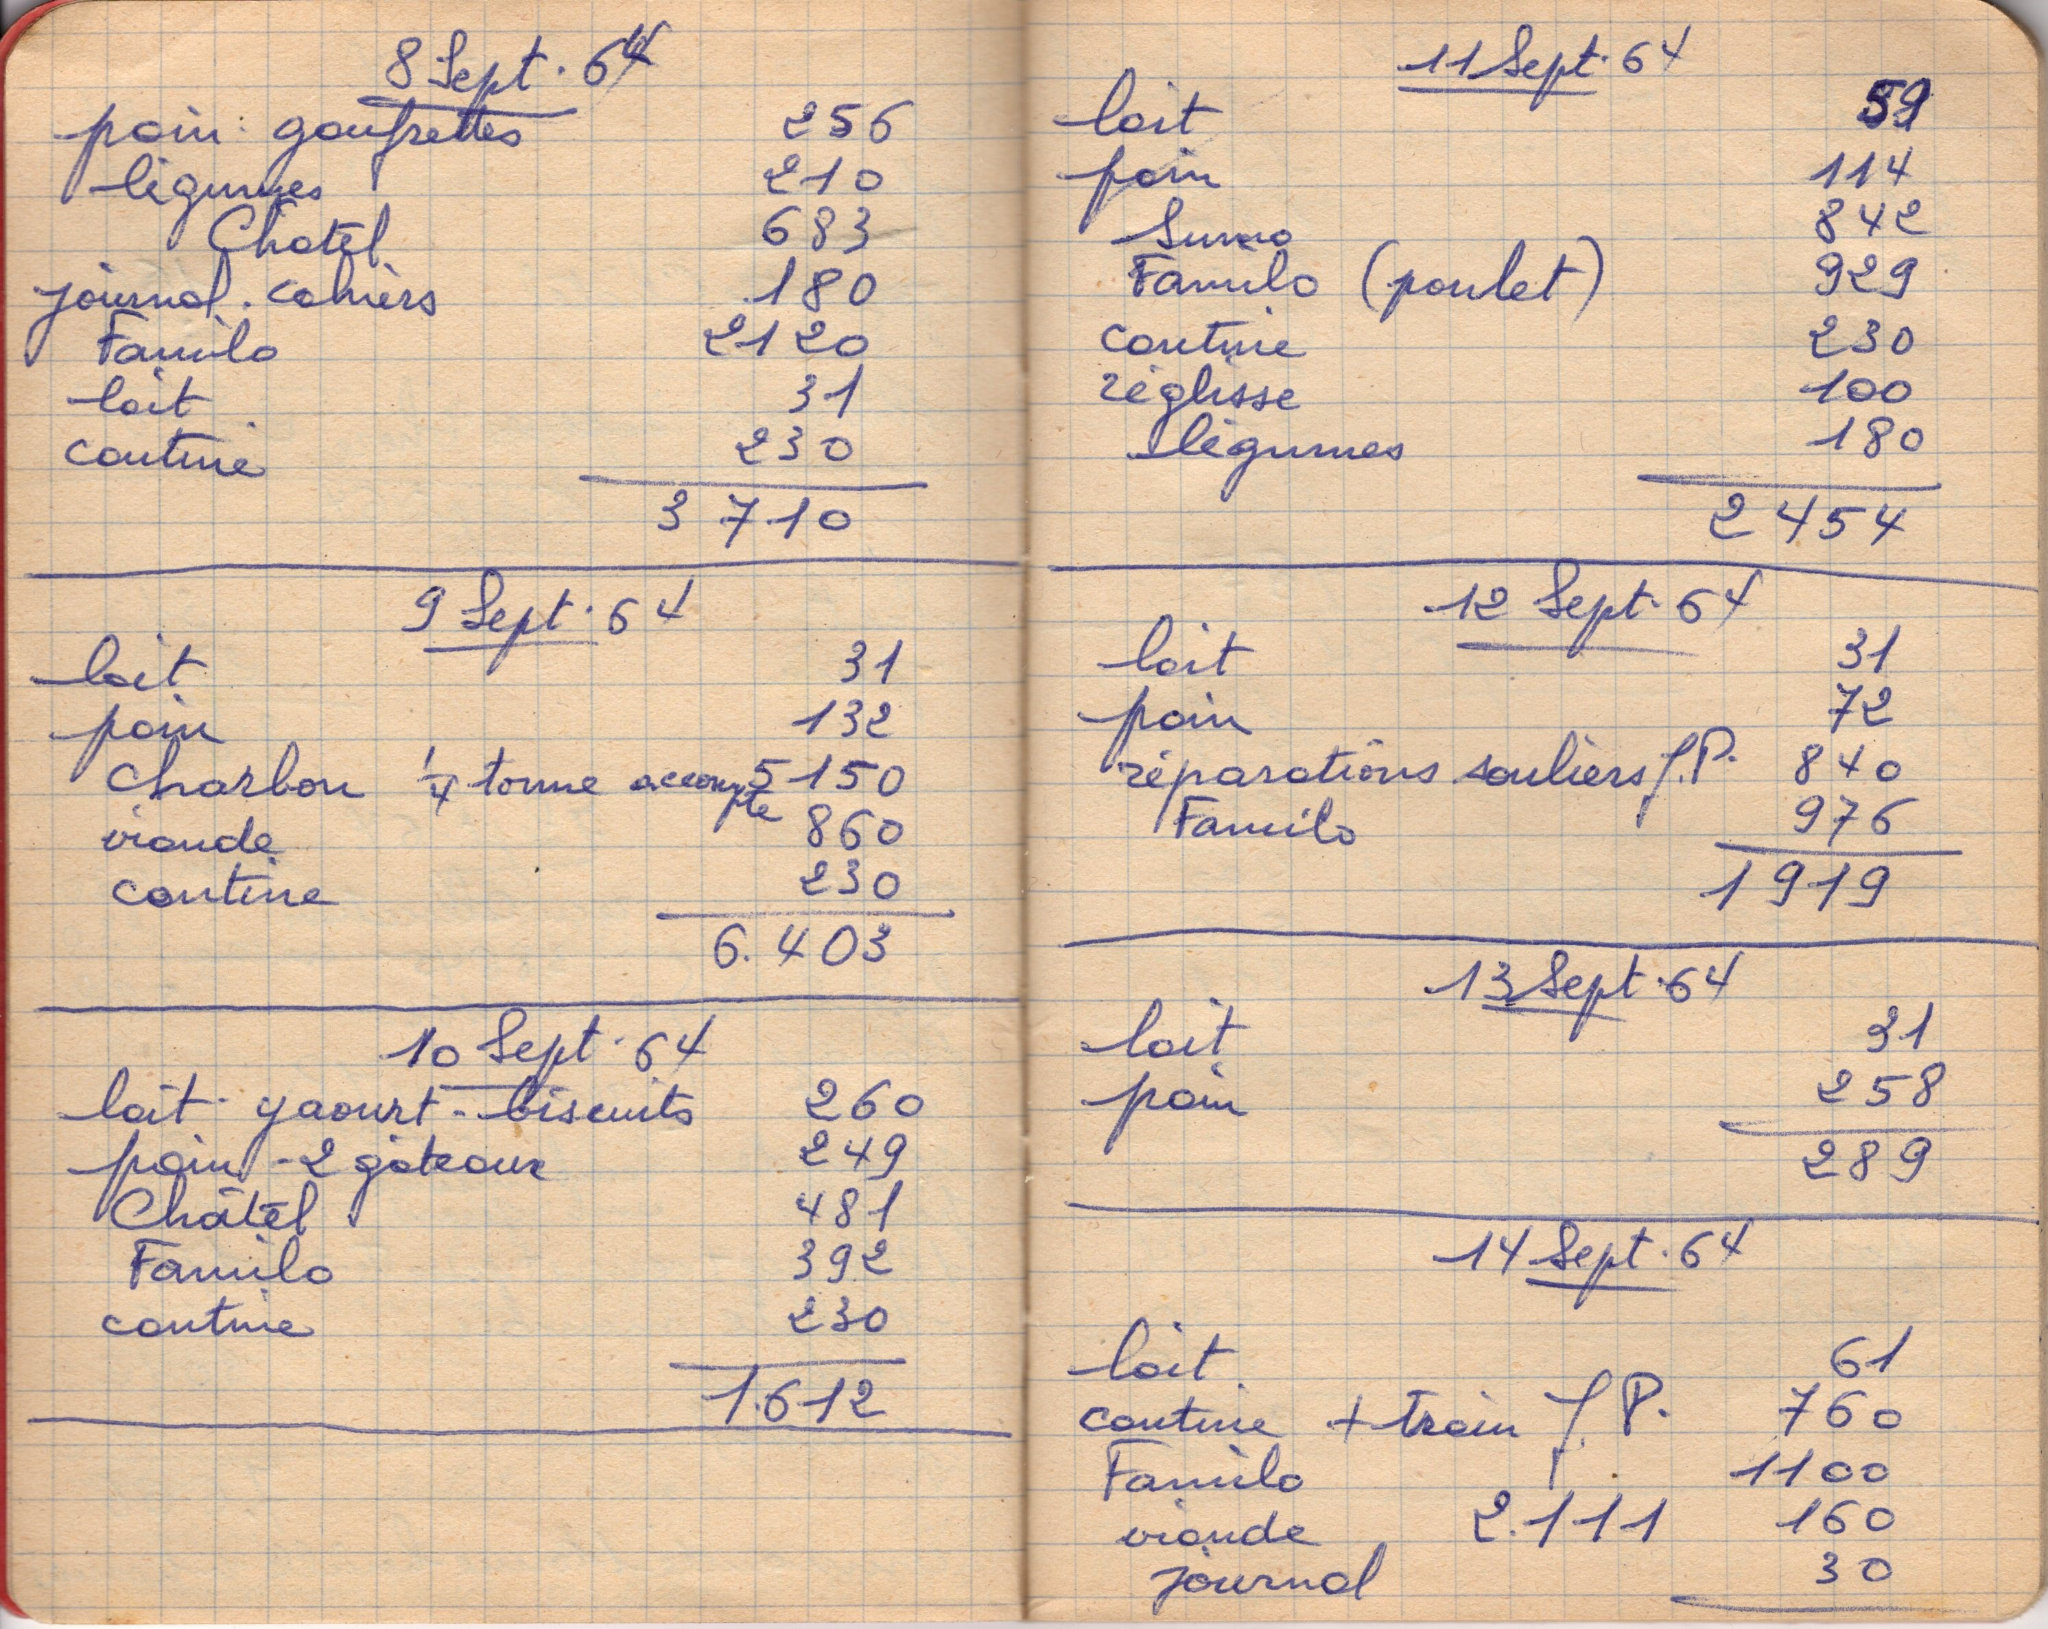 8 Sept. 64
pain. gaufrettes 256
légumes 210
Chatel 683
journal. cahiers 180
Familo 2120
lait 31
cantine 230
3710
9 Sept. 64
lait 31
pain 132
charbon 1/4 tonne accompte 5150
viande 860
cantine 230
6.403
10 Sept. 64
lait. yaourt. biscuits 260
pain - 2 gâteaux 249
Châtel 481
Familo 392
cantine 230
1.612
11 Sept. 64
lait 59
pain 114
Suma 842
Familo (poulet) 929
cantine 230
réglisse 100
légumes 180
2454
12 Sept. 64
lait 31
pain 72
réparations souliers J.P. 840
Familo 976
1919
13 Sept. 64
lait 31
pain 258
289
14 Sept. 64
lait 61
cantine + train J.P. 760
Familo 1100
viande 2.111 160
journal 30